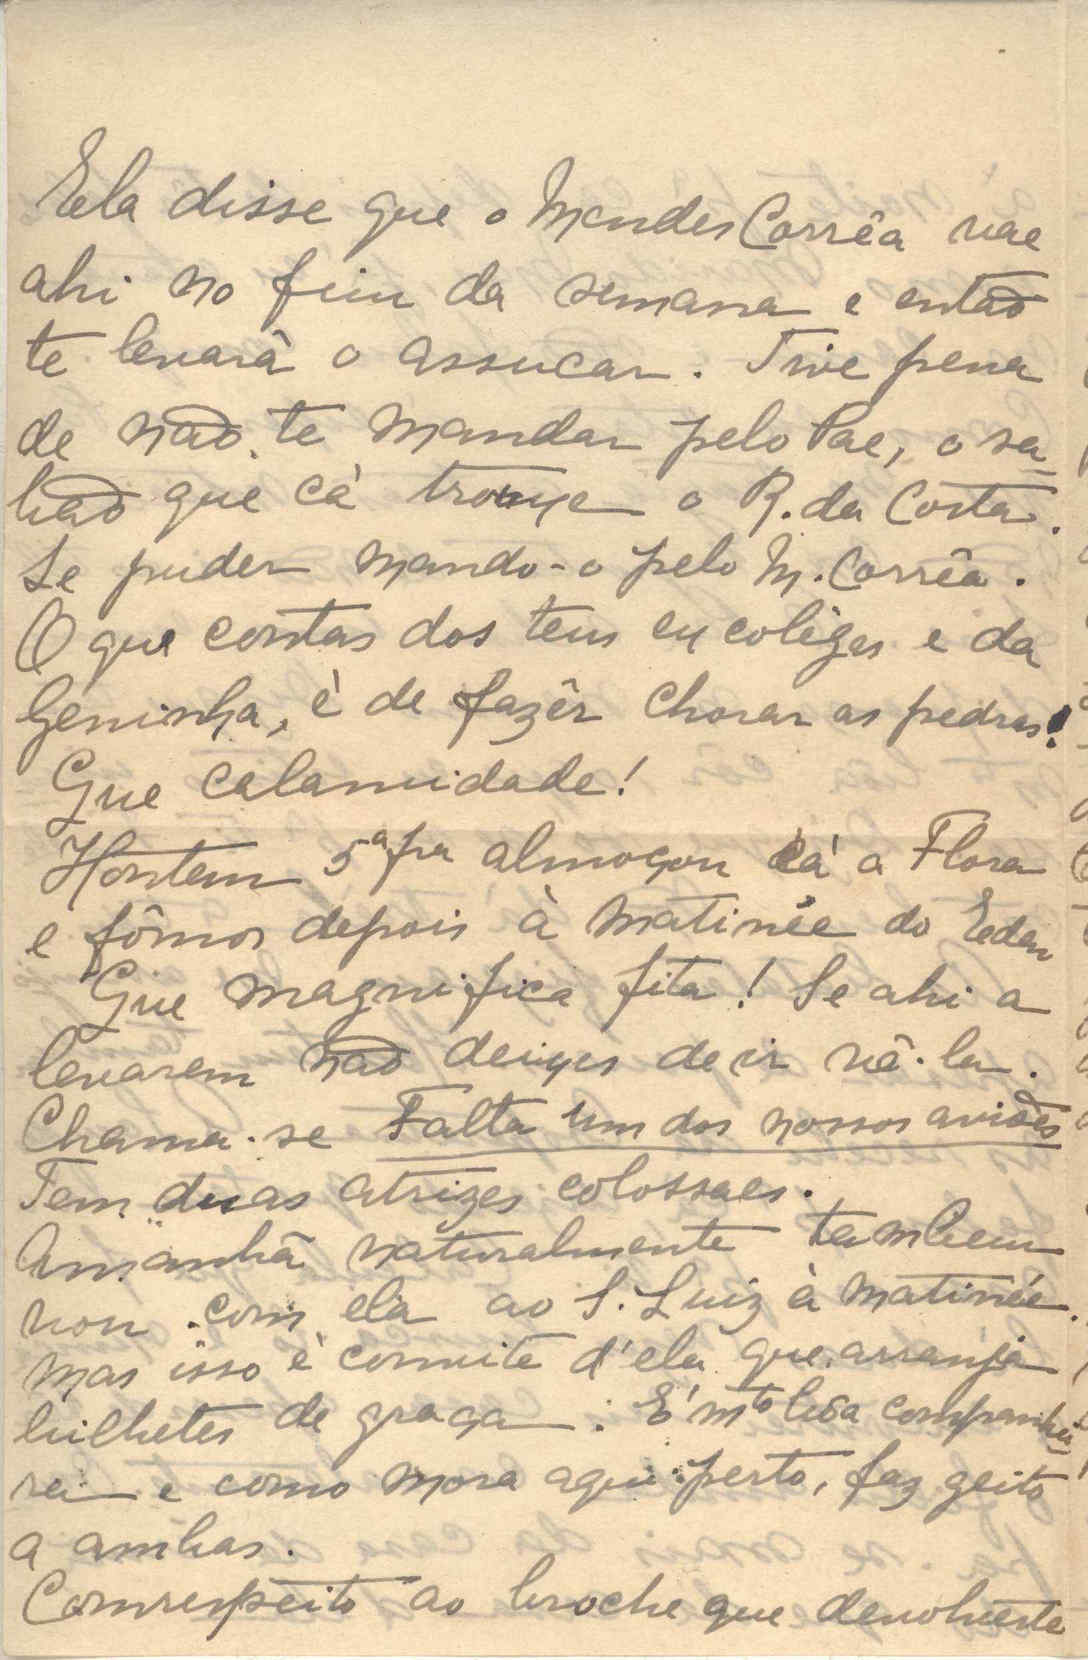 Ela disse que o Mendes Corrêa vae
ahi no fim da semana e então
te levará o assucar. Tive pena
de não te mandar pelo Pae, o sa-
bão que cá trouxe o R. da Costa.
Se puder mando-o pelo M. Corrêa.
O que contas dos teus ex colégas e da
Geninha, é de fazêr chorar as pedras!
Que calamidade!
Hontem 5ª fra almoçou cá a Flora
e fômos depois à matinée do Eden
Que magnifica fita! Se ahi a
levarem não deixes de ir vê-la.
Chama-se Falta um dos nossos aviões
Tem duas atrizes colossaes.
Amanhã naturalmente tambem
vou com ela ao S. Luiz à matinée.
mas isso é convite d'ela que arranja
bilhetes de graça. É mto bôa companhei-
ra e como mora aqui perto, faz geito
a ambas.
Com respeito ao broche que devolveste